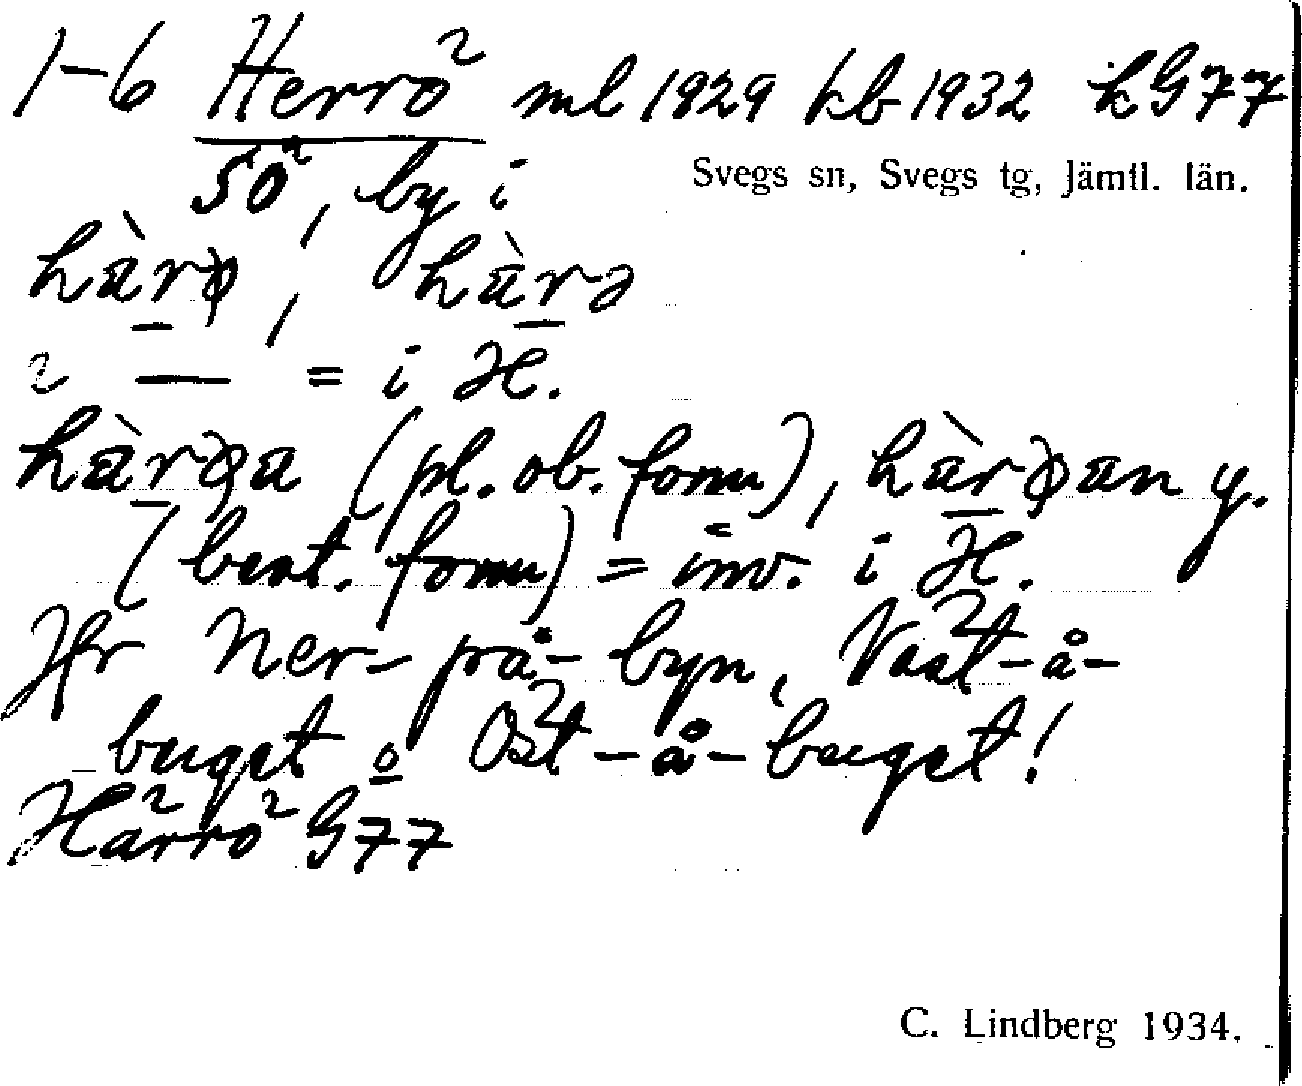 1-6 Herrö ml 1929 kb 1932 k G77
50, by i Svegs sn, Svegs tg, Jämtl. län.
hàrø, hàrə
i — = i H.
hàrøa (pl. ob. form), hàrøan y.
(best. form) = inv. i H.
Jfr Ner-på-byn, Väst-å-
buget o Öst-å-buget!
Härrö G77
C. Lindberg 1934.